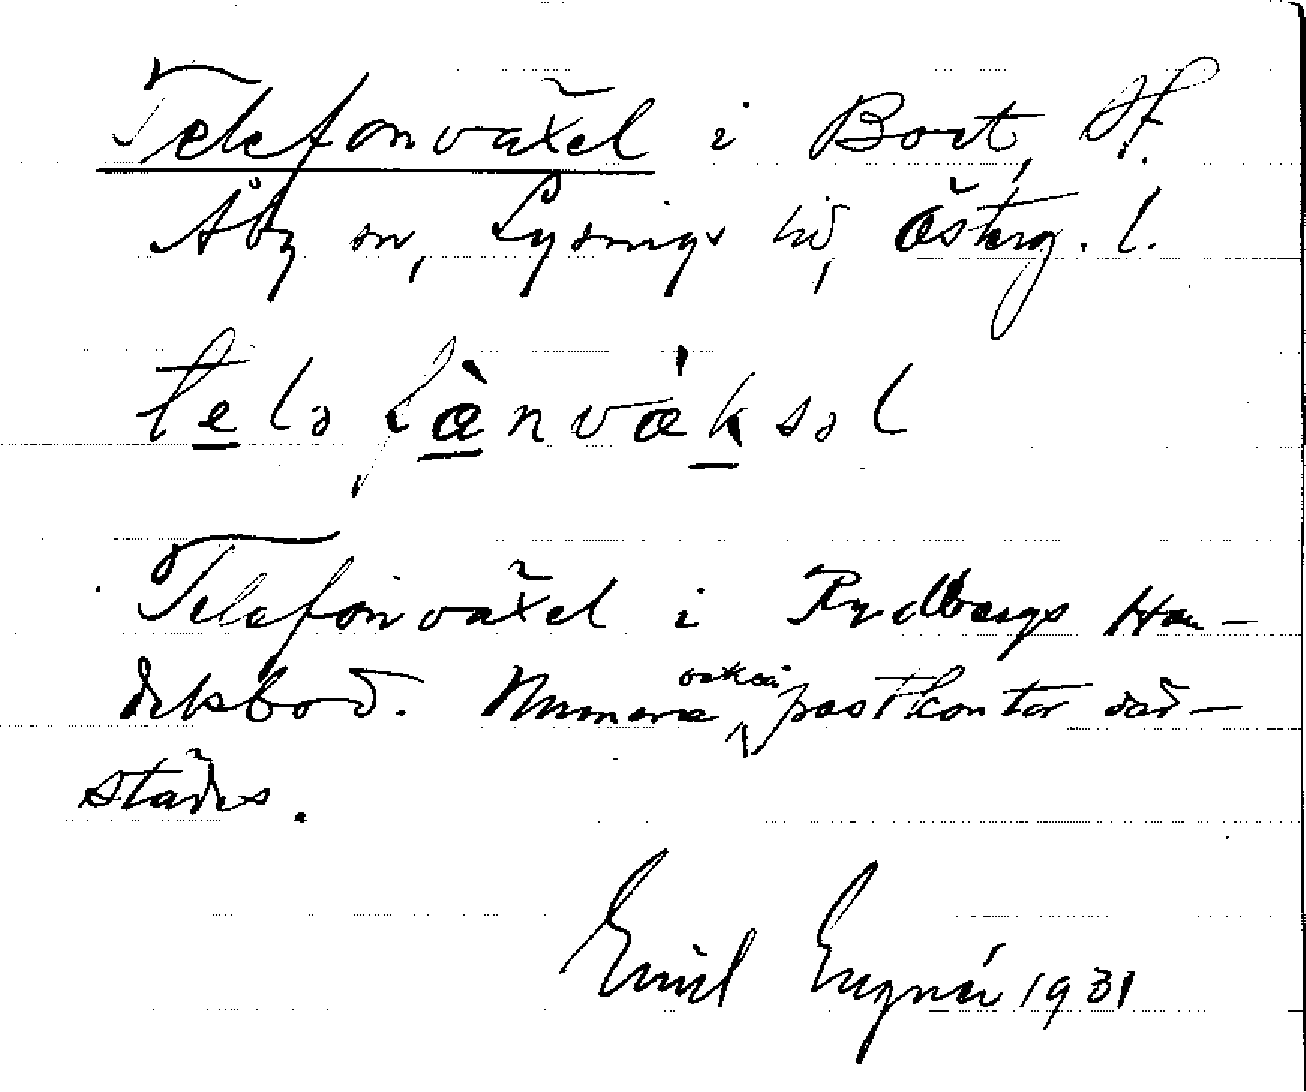 Telefonväxel i Bort, H.
Åby sn, Lysings hd, Österg. l.
telə fànvák səl
Telefonväxel i Rydbergs Han-
delsbod. Numera också postkontor där-
städes.
Emil Engnér 1931